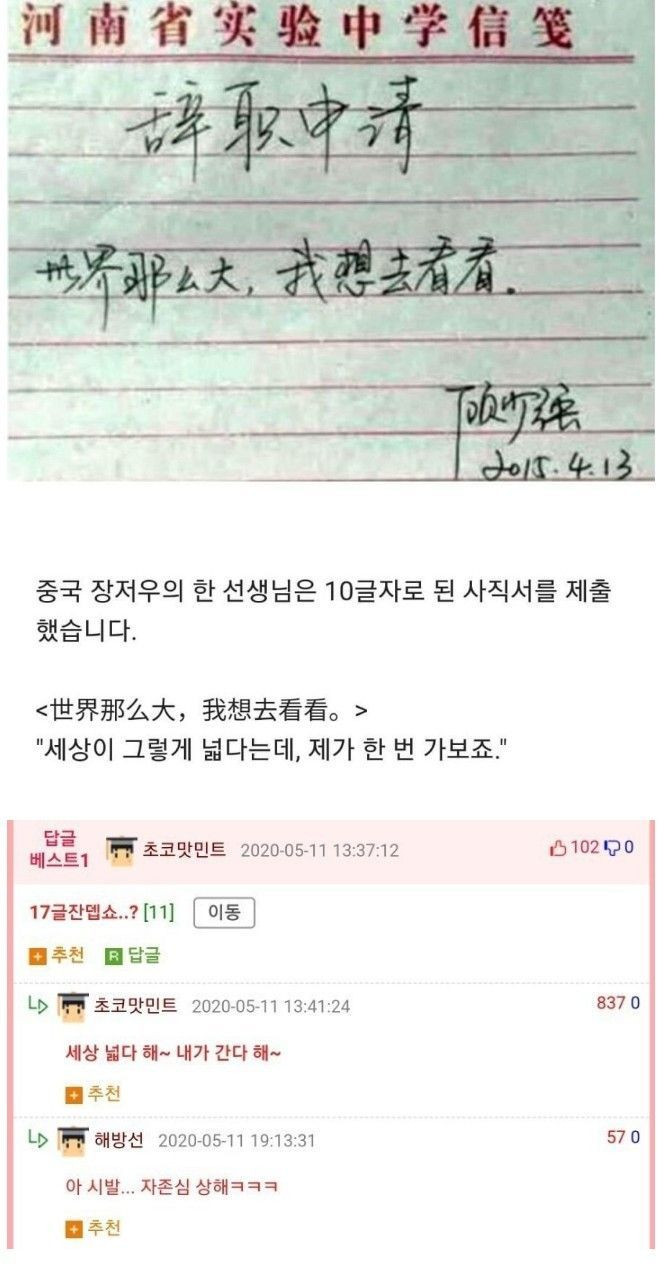 河南省实验中学信笺
辞职申请
世界那么大，我想去看看.
顾少强
2015.4.13
중국 장저우의 한 선생님은 10글자로 된 사직서를 제출
했습니다.
<世界那么大，我想去看看。>
"세상이 그렇게 넓다는데, 제가 한 번 가보죠."
답글
베스트1
초코맛민트 2020-05-11 13:37:12 102 0
17글잔뎁쇼..? [11] 이동
+ 추천 R 답글
초코맛민트 2020-05-11 13:41:24 837 0
세상 넓다 해~ 내가 간다 해~
+ 추천
해방선 2020-05-11 19:13:31 57 0
아 시발... 자존심 상해ㅋㅋㅋ
+ 추천